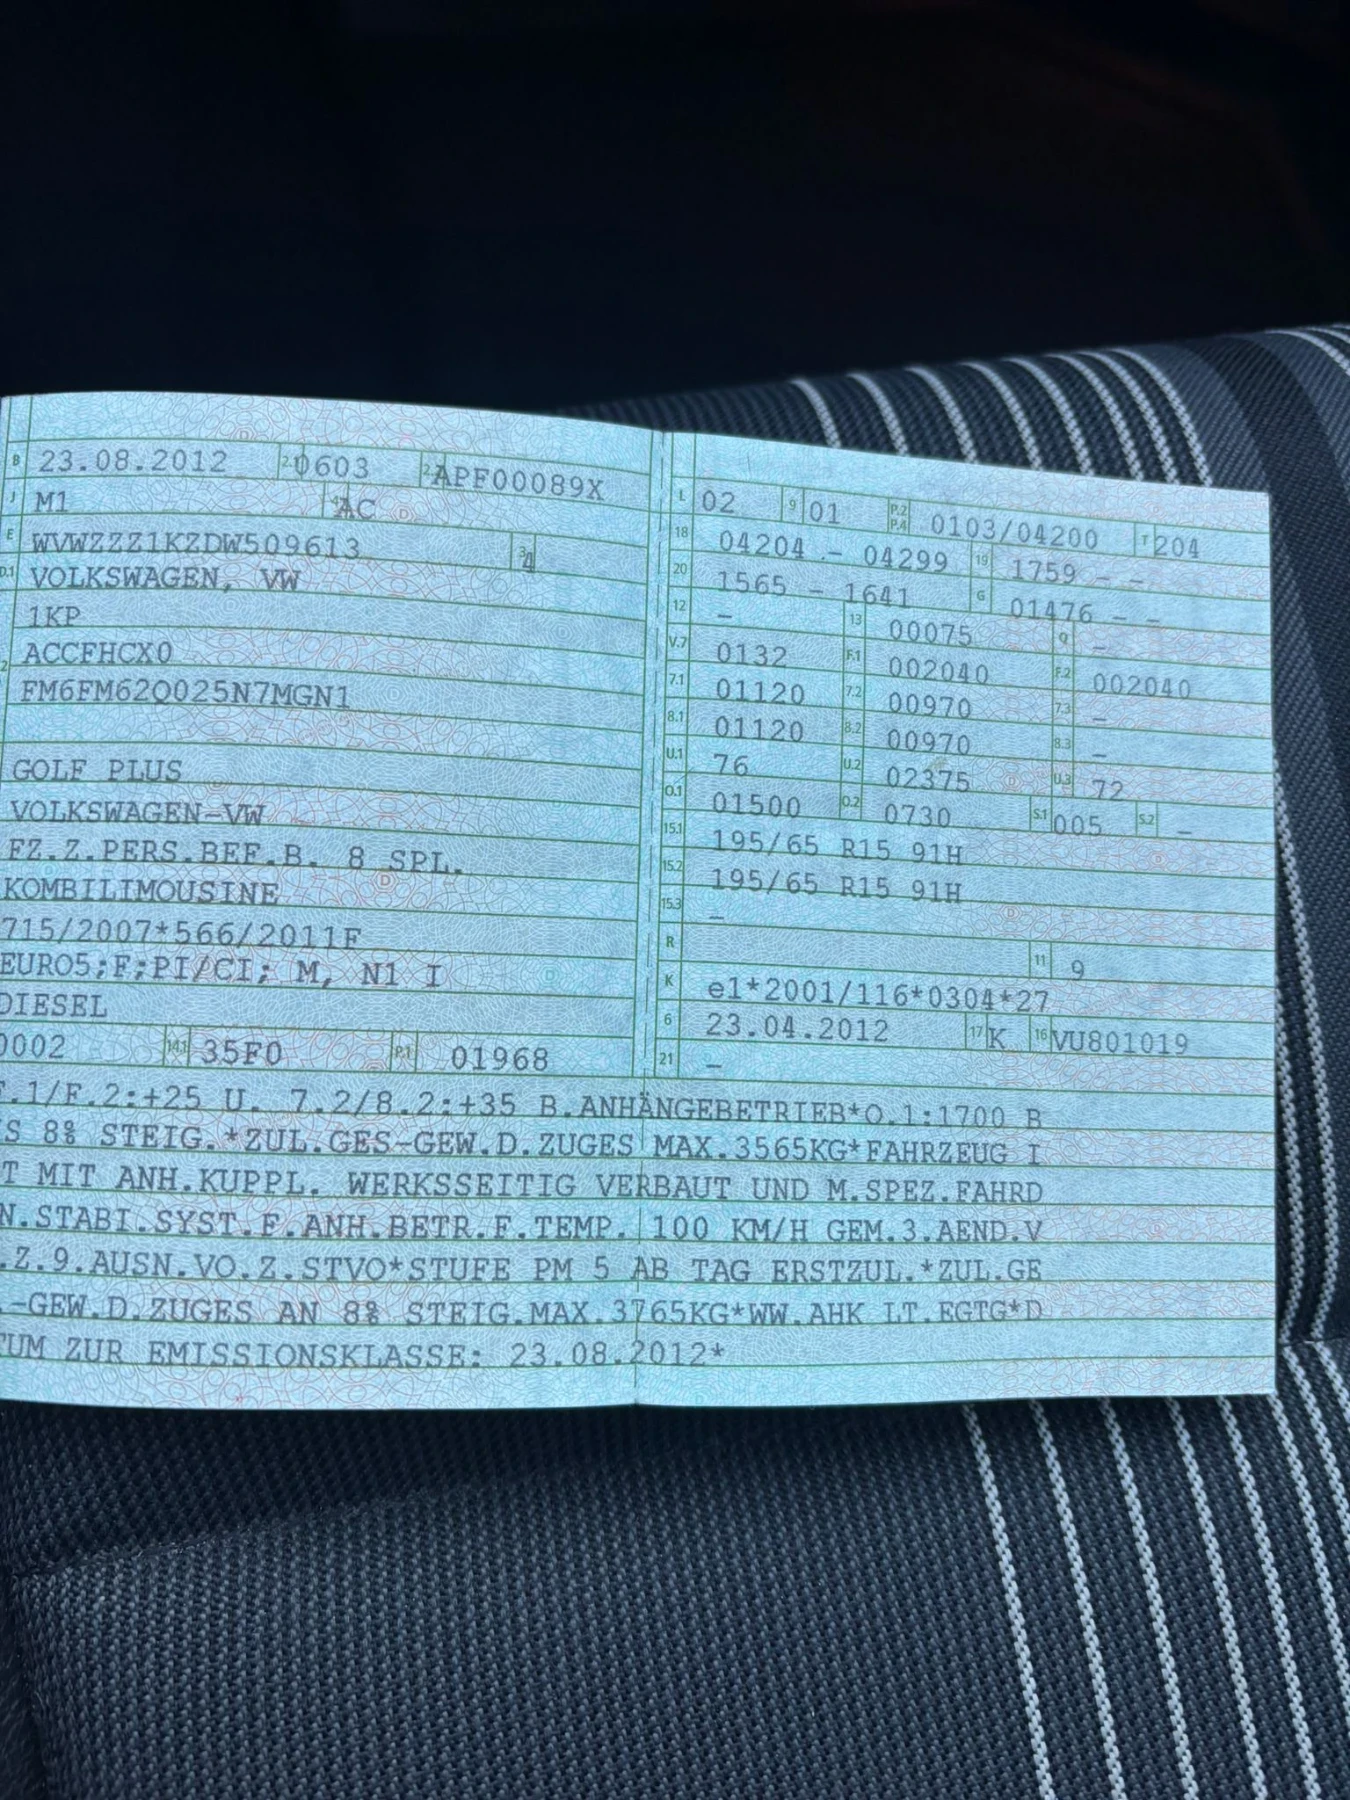 B 23.08.2012 2.1 0603 2.2 APF00089X
J M1 4 AC
E WVWZZZ1KZDW509613 3 4
D.1 VOLKSWAGEN, VW
1KP
2 ACCFHCX0
FM6FM62Q025N7MGN1
GOLF PLUS
VOLKSWAGEN-VW
FZ.Z.PERS.BEF.B. 8 SPL.
KOMBILIMOUSINE
715/2007*566/2011F
EURO5;F;PI/CI; M, N1 I
DIESEL
0002 14.1 35F0 P.1 01968
L 02 9 01 P.2 P.4 0103/04200 T 204
18 04204 - 04299 19 1759 - -
20 1565 - 1641 G 01476 - -
12 - 13 00075 Q -
V.7 0132 F.1 002040 F.2 002040
7.1 01120 7.2 00970 7.3 -
8.1 01120 8.2 00970 8.3 -
U.1 76 U.2 02375 U.3 72
O.1 01500 O.2 0730 S.1 005 S.2 -
15.1 195/65 R15 91H
15.2 195/65 R15 91H
15.3 -
R 11 9
K e1*2001/116*0304*27
6 23.04.2012 17 K 16 VU801019
21 -
F.1/F.2:+25 U. 7.2/8.2:+35 B.ANHÄNGEBETRIEB*O.1:1700 B
S 8% STEIG.*ZUL.GES-GEW.D.ZUGES MAX.3565KG*FAHRZEUG I
T MIT ANH.KUPPL. WERKSSEITIG VERBAUT UND M.SPEZ.FAHRD
N.STABI.SYST.F.ANH.BETR.F.TEMP. 100 KM/H GEM.3.AEND.V
.Z.9.AUSN.VO.Z.STVO*STUFE PM 5 AB TAG ERSTZUL.*ZUL.GE
.-GEW.D.ZUGES AN 8% STEIG.MAX.3765KG*WW.AHK LT.EGTG*D
TUM ZUR EMISSIONSKLASSE: 23.08.2012*